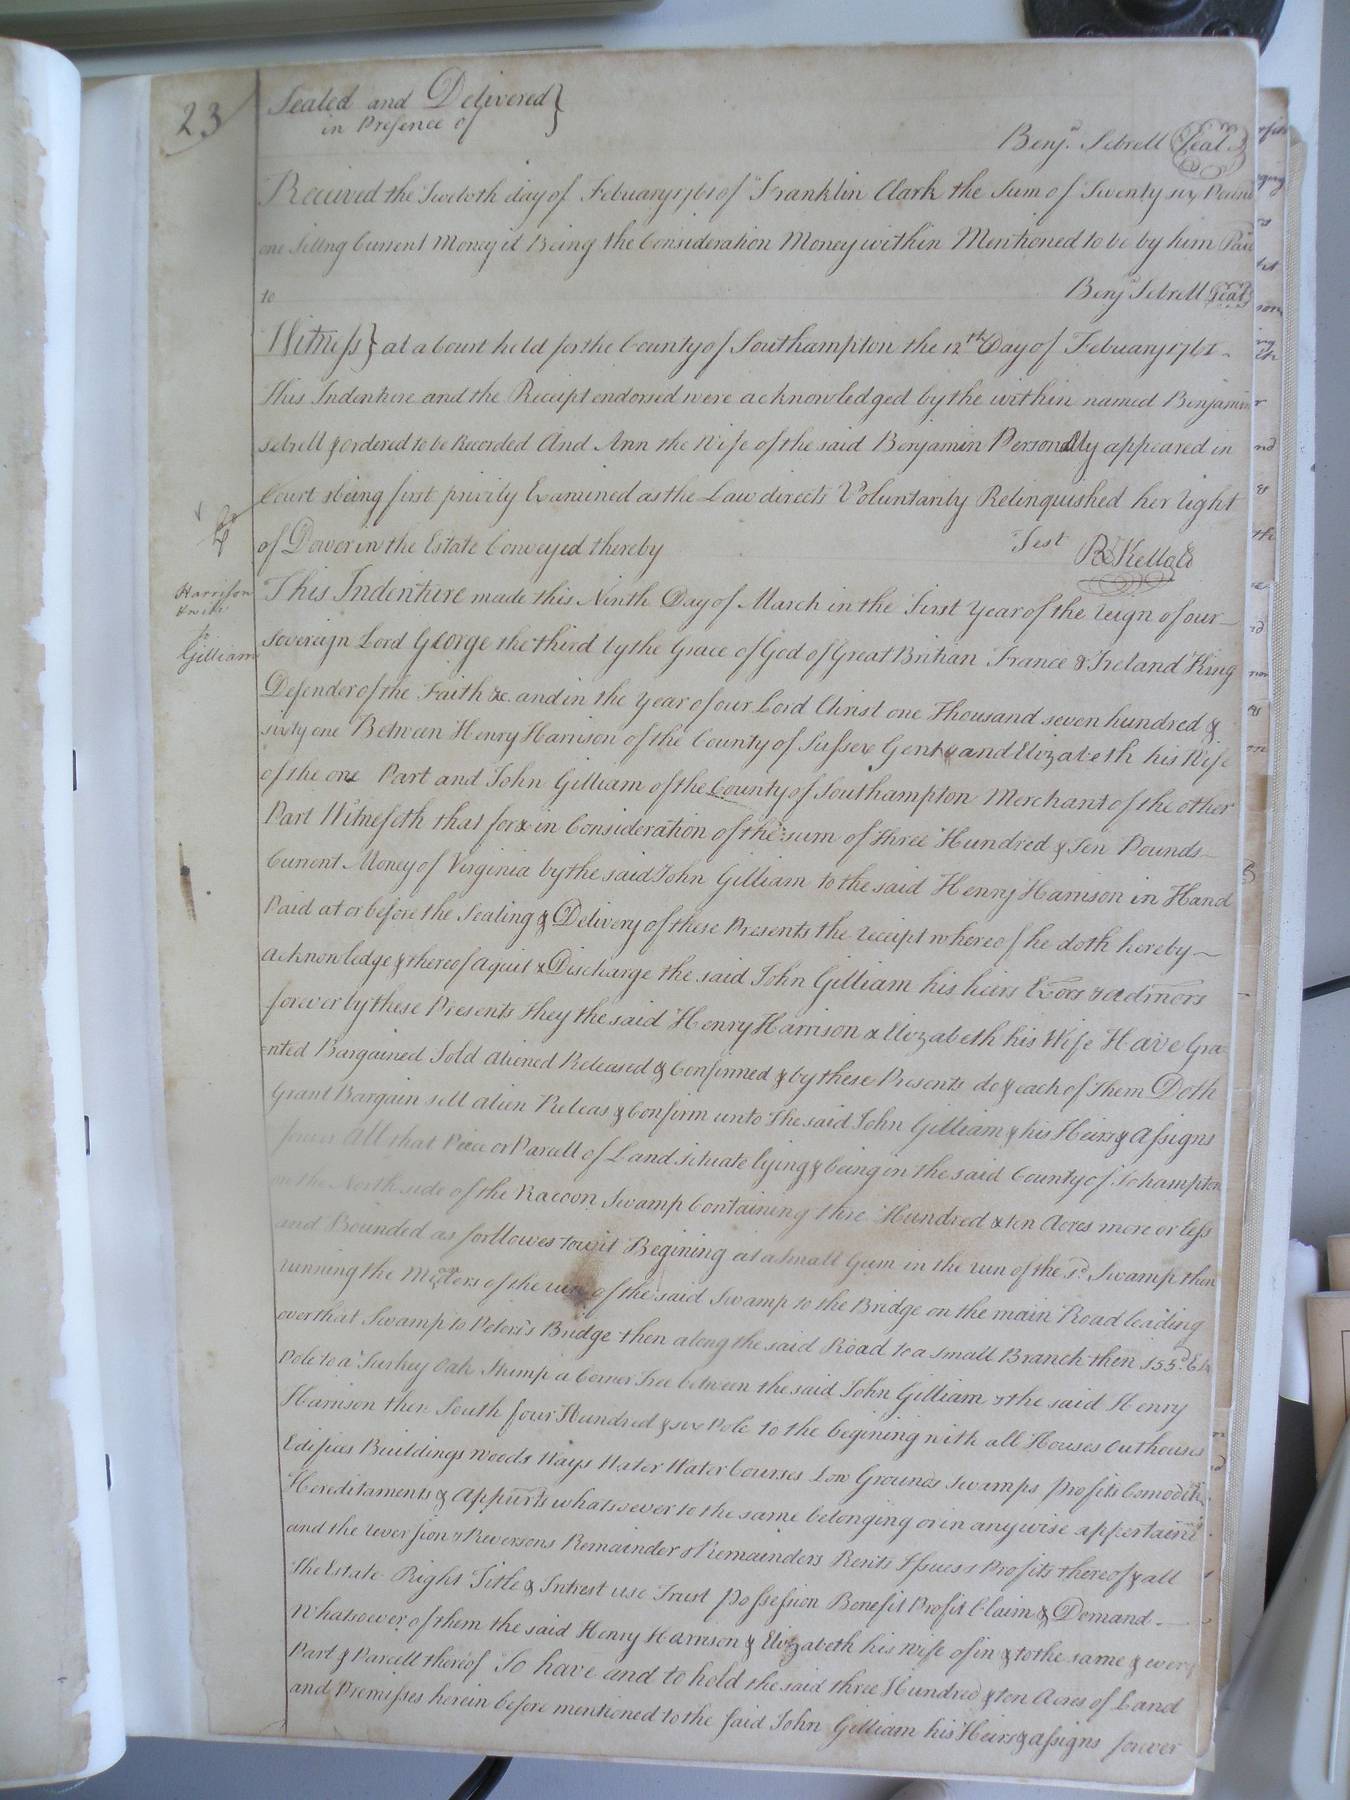 23
Sealed and Delivered }
in Presence of
Benj.ª Sebrell Seal
Received the Twelvth day of February 1761 of Franklin Clark the Sum of Twenty six Pound
one Silling Current Money it Being the Consideration Money within Mentioned to be by him Paid
to
Benj Sebrell Seal
Witness } at a Court held for the County of Southampton the 12th Day of February 1761 -
This Indenture and the Receipt endorsed were acknowledged by the within named Benjamin
Sebrell & ordered to be Recorded And Ann the Wife of the said Benjamin Personally appeared in
Court & being first privily Examined as the Law directs Voluntarily Relinquished her right
of Dower in the Estate Conveyed thereby
Test R Kello Cl
Harrison
& wife
to
Gilliam
This Indenture made this Ninth Day of March in the first Year of the reign of our
Sovereign Lord George the third by the Grace of God of Great Britian France & Ireland King
Defender of the Faith &c. and in the Year of our Lord Christ one Thousand seven hundred &
sixty one Between Henry Harrison of the County of Sussex Gent & and Elizabeth his Wife
of the one Part and John Gilliam of the County of Southampton Merchant of the other
Part Witnesseth that for & in Consideration of the sum of Three Hundred & Ten Pounds
Current Money of Virginia by the said John Gilliam to the said Henry Harrison in Hand
Paid at or before the Sealing & Delivery of these Presents the receipt whereof he doth hereby
acknowledge & thereof aquit & Discharge the said John Gilliam his heirs Exors & admors
forever by these Presents they the said Henry Harrison & Elizabeth his Wife Have Gra
=nted Bargained Sold aliened Released & Confirmed & by these Presents do & each of them Doth
Grant Bargain sell alien Releas & Confirm unto The said John Gilliam & his Heirs & Assigns
forever All that Piece or Parcell of Land situate lying & being in the said County of Sohampton
on the North side of the Racoon Swamp Containing thre Hundred & ten Acres more or less
and Bounded as forllowes towit Begining at a small Gum in the run of the sd. Swamp then
running the Meters of the run of the said Swamp to the Bridge on the main Road leading
over that Swamp to Peters's Bridge then along the said Road to a small Branch then S55d. E
Pole to a Turkey Oak Stump a Corner Tree between the said John Gilliam & the said Henry
Harrison then South four Hundred & six Pole to the begining with all Houses outhouses
Edifices Buildings woods Ways Water Water Courses Low Grounds Swamps profits Comodeties
Hereditaments & Appurts whatsoever to the same belonging or in any wise appertaine
and the reversion & Reversons Remainder & Remainders Rents Issues & Profits thereof & all
The Estate Right Title & Intrest use Trust possession Benefit Profit Claim & Demand
Whatsoever of them the said Henry Harrison & Elizabeth his wife of in & to the same & every
Part & Parcell thereof To have and to hold the said three Hundred & ten Acres of Land
and Premisses herein before mentioned to the said John Gilliam his Heirs & assigns forever